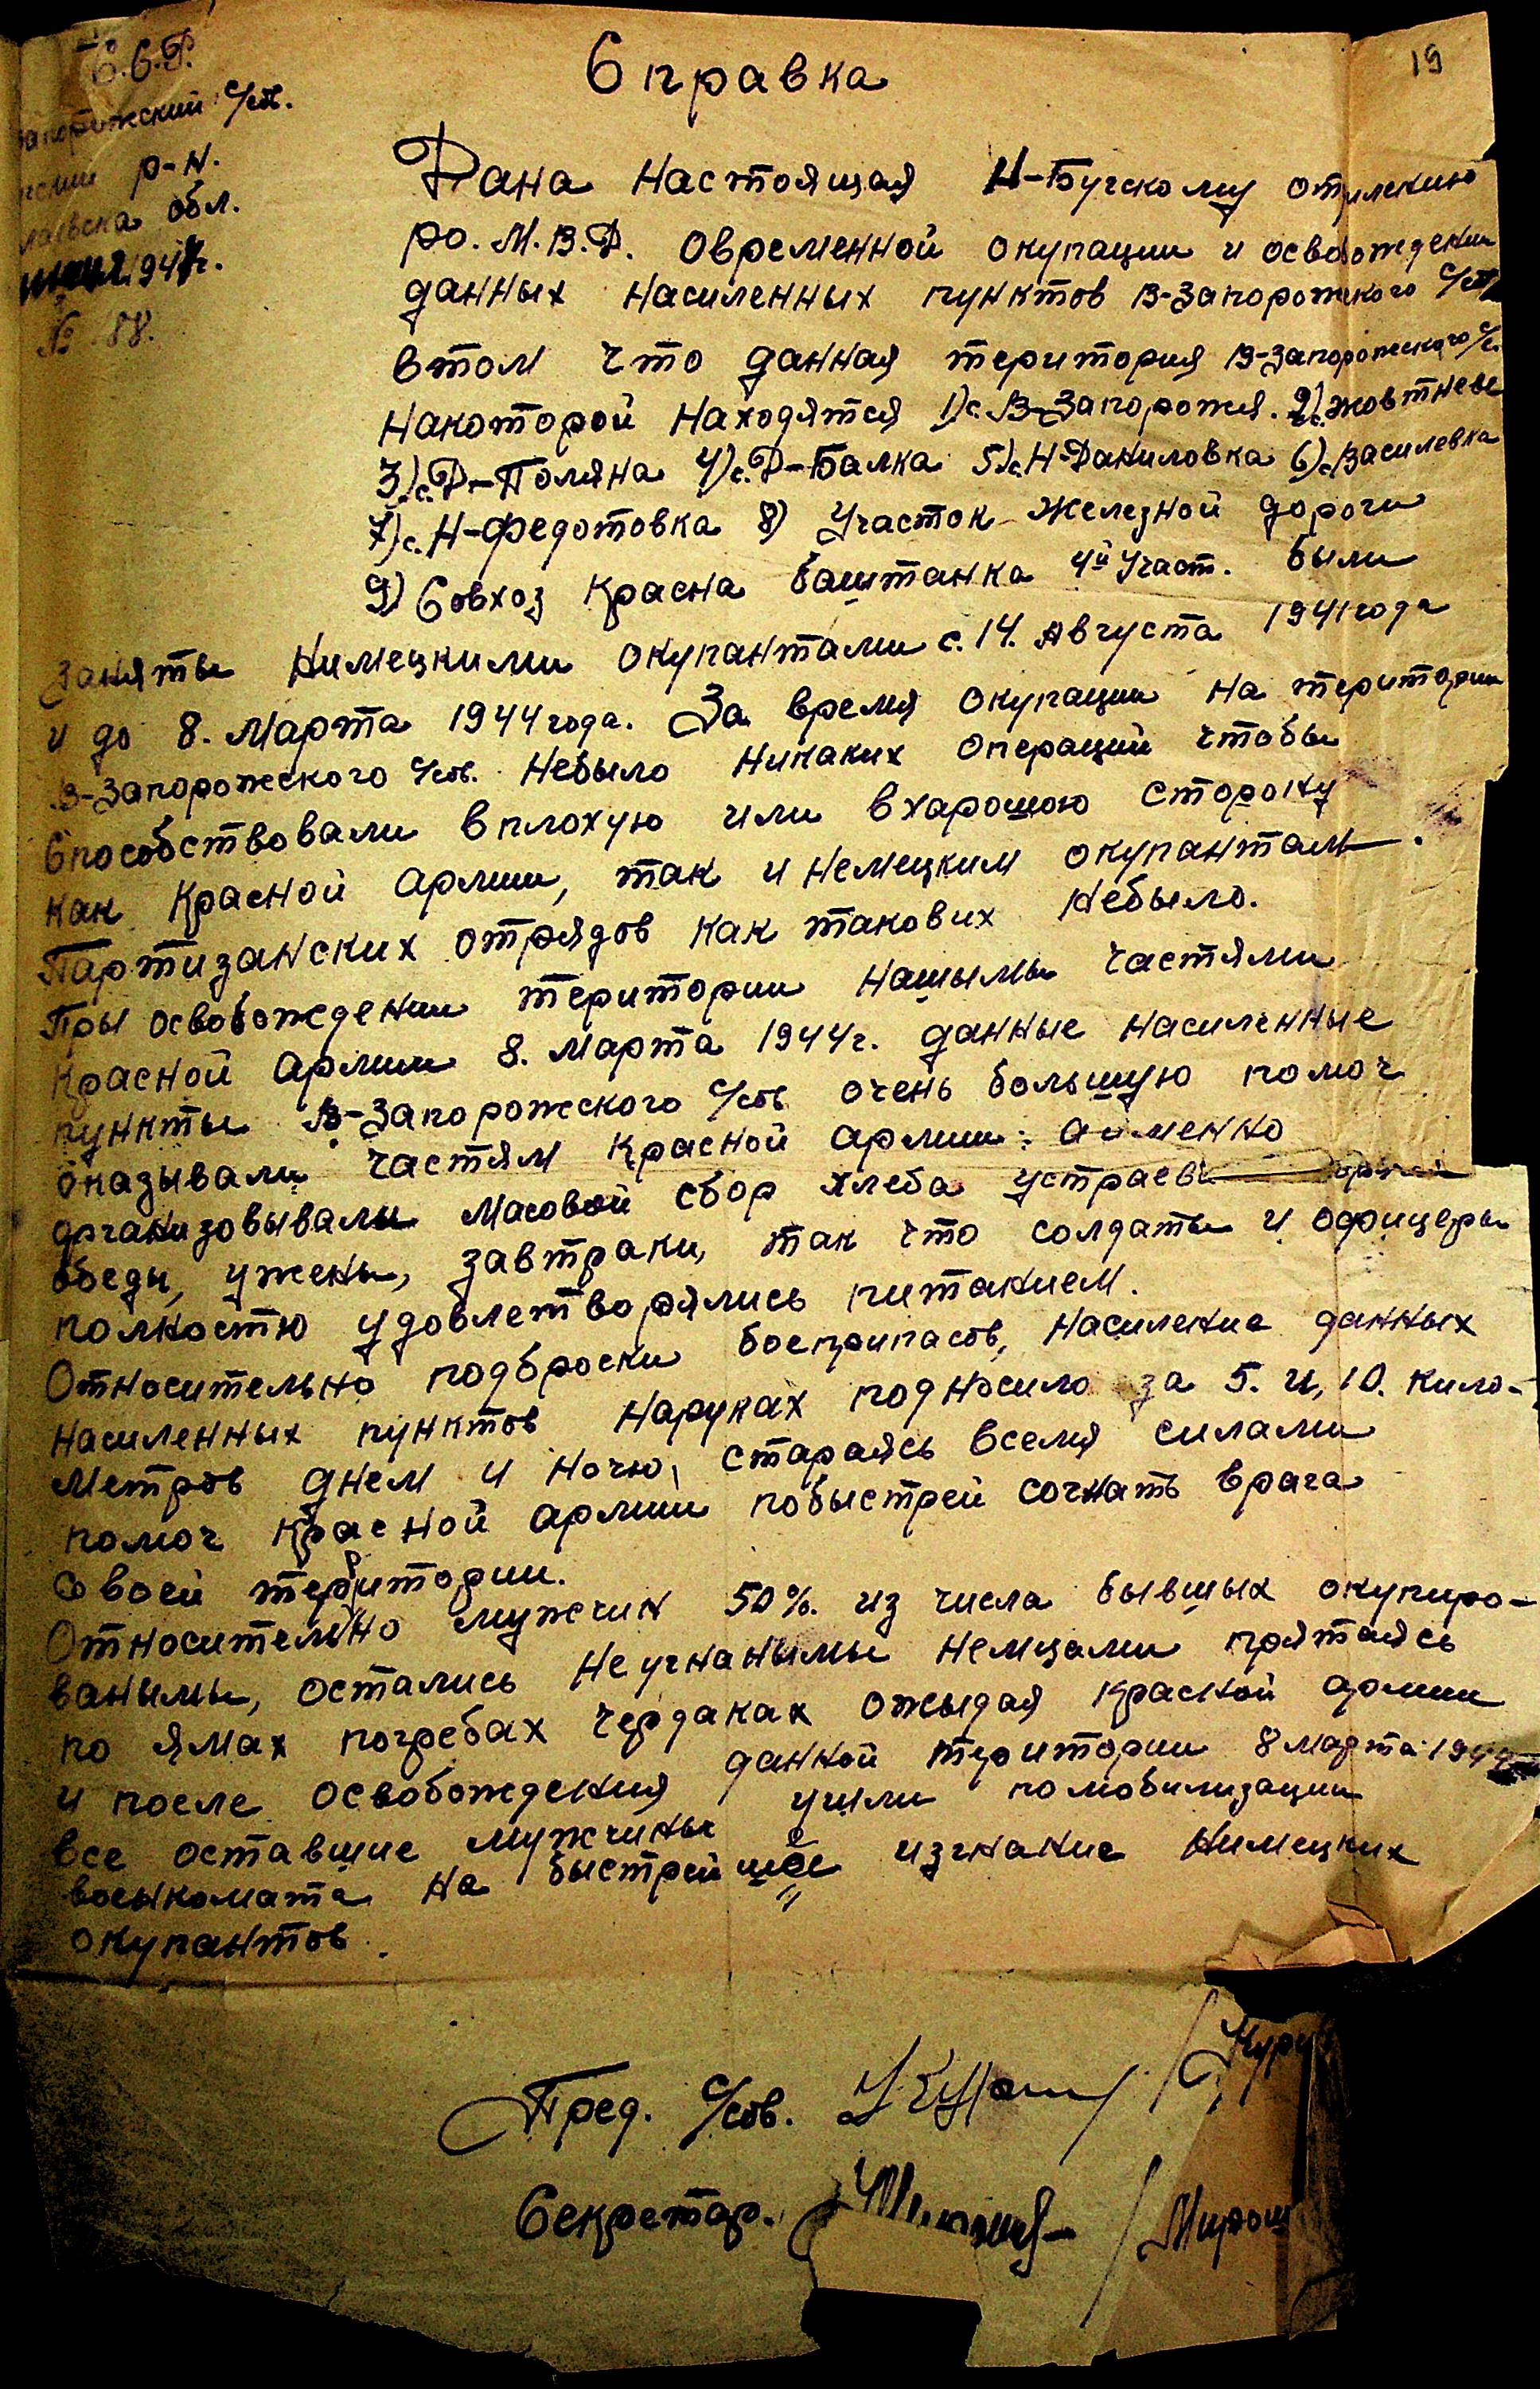 19
С.С.Р.
Запорожский С/сов.
р-н.
обл.
194 г.
№ 88.
Справка
Дана настоящая Н-Бугскому отделению
ро. М.В.Д. овременной окупации и освобождении
данных насиленных пунктов В-Запорожского С/сов
втом что данная територия В-Запорожского С/с.
накоторой находятся 1) с. В-Запорожя. 2) с. Жовтневе
3) с. Д-Поляна 4) с. Д-Балка 5) с. Н-Даниловка 6) с. Василевка
7) с. Н-Федотовка 8) Участок Железной дороги
9) Совхоз Красна Баштанка 4й Участ. были
заняты Нимецкими окупантами с. 14. Августа 1941 года
и до 8. Марта 1944 года. За время окупации на територии
В-Запорожского С/сов. небыло никаких операций чтобы
способствовали вплохую или вхарошою сторону
как Красной армии, так и немецким окупантам.
Партизанских отрядов как такових небыло.
Пры освобождении територии нашымы частями
Красной Армии 8. Марта 1944 г. данные насиленные
пункты В-Запорожского С/сов очень большую помоч
оказывали частям Красной армии: аименно
организовывалы масовой сбор хлеба устраев
обеды, ужены, завтраки, так что солдаты и офицеры
полностю удовлетворялись питанием.
Относительно подброски боеприпасов, насиление данных
насиленных пунктов наруках подносило за 5. и, 10. кило-
метров днем и ночю, стараясь всемя силами
помоч Красной армии побыстрей согнать врага
со воей территории.
Относително мужчин 50%. из числа бывшых окупиро-
ванымы, остались неугнанымы немцами прятаясь
по ямах погребах чердаках ожыдая Красной армии
и после освобождения данной територии 8 марта 1944
все оставшие мужчины ушли помобилизации
военкомата на быстрейшее изгнание Нимецких
окупантов.
Пред. С/сов.
Секретар. / Мирош